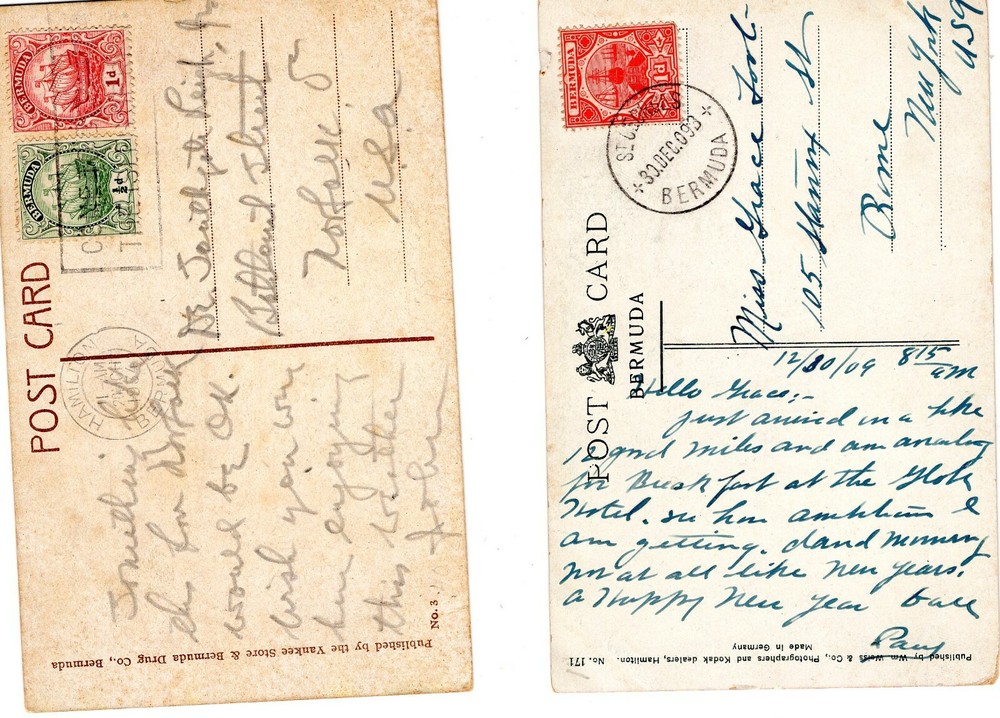 BERMUDA
1d
BERMUDA
½d
POST CARD
HAMILTON
BERMUDA
Norfolk
USA
Something
else for
would be OK.
wish you were
here enjoying
this weather
John
No. 3
Published by the Yankee Store & Bermuda Drug Co., Bermuda
BERMUDA
1d
ST. GEORGES
30.DEC.09
BERMUDA
POST CARD
BERMUDA
Miss Grace
105 St
Rome
New York
USA
12/30/09 8 15 AM
Hello Grace:-
Just arrived on a bike
12 good miles and am
for Breakfast at the Globe
Hotel. see how ambitious I
am getting.
not at all like New Years.
a Happy New Year
Published by Wm Weiss & Co., Photographers and Kodak dealers, Hamilton. No. 171
Made in Germany